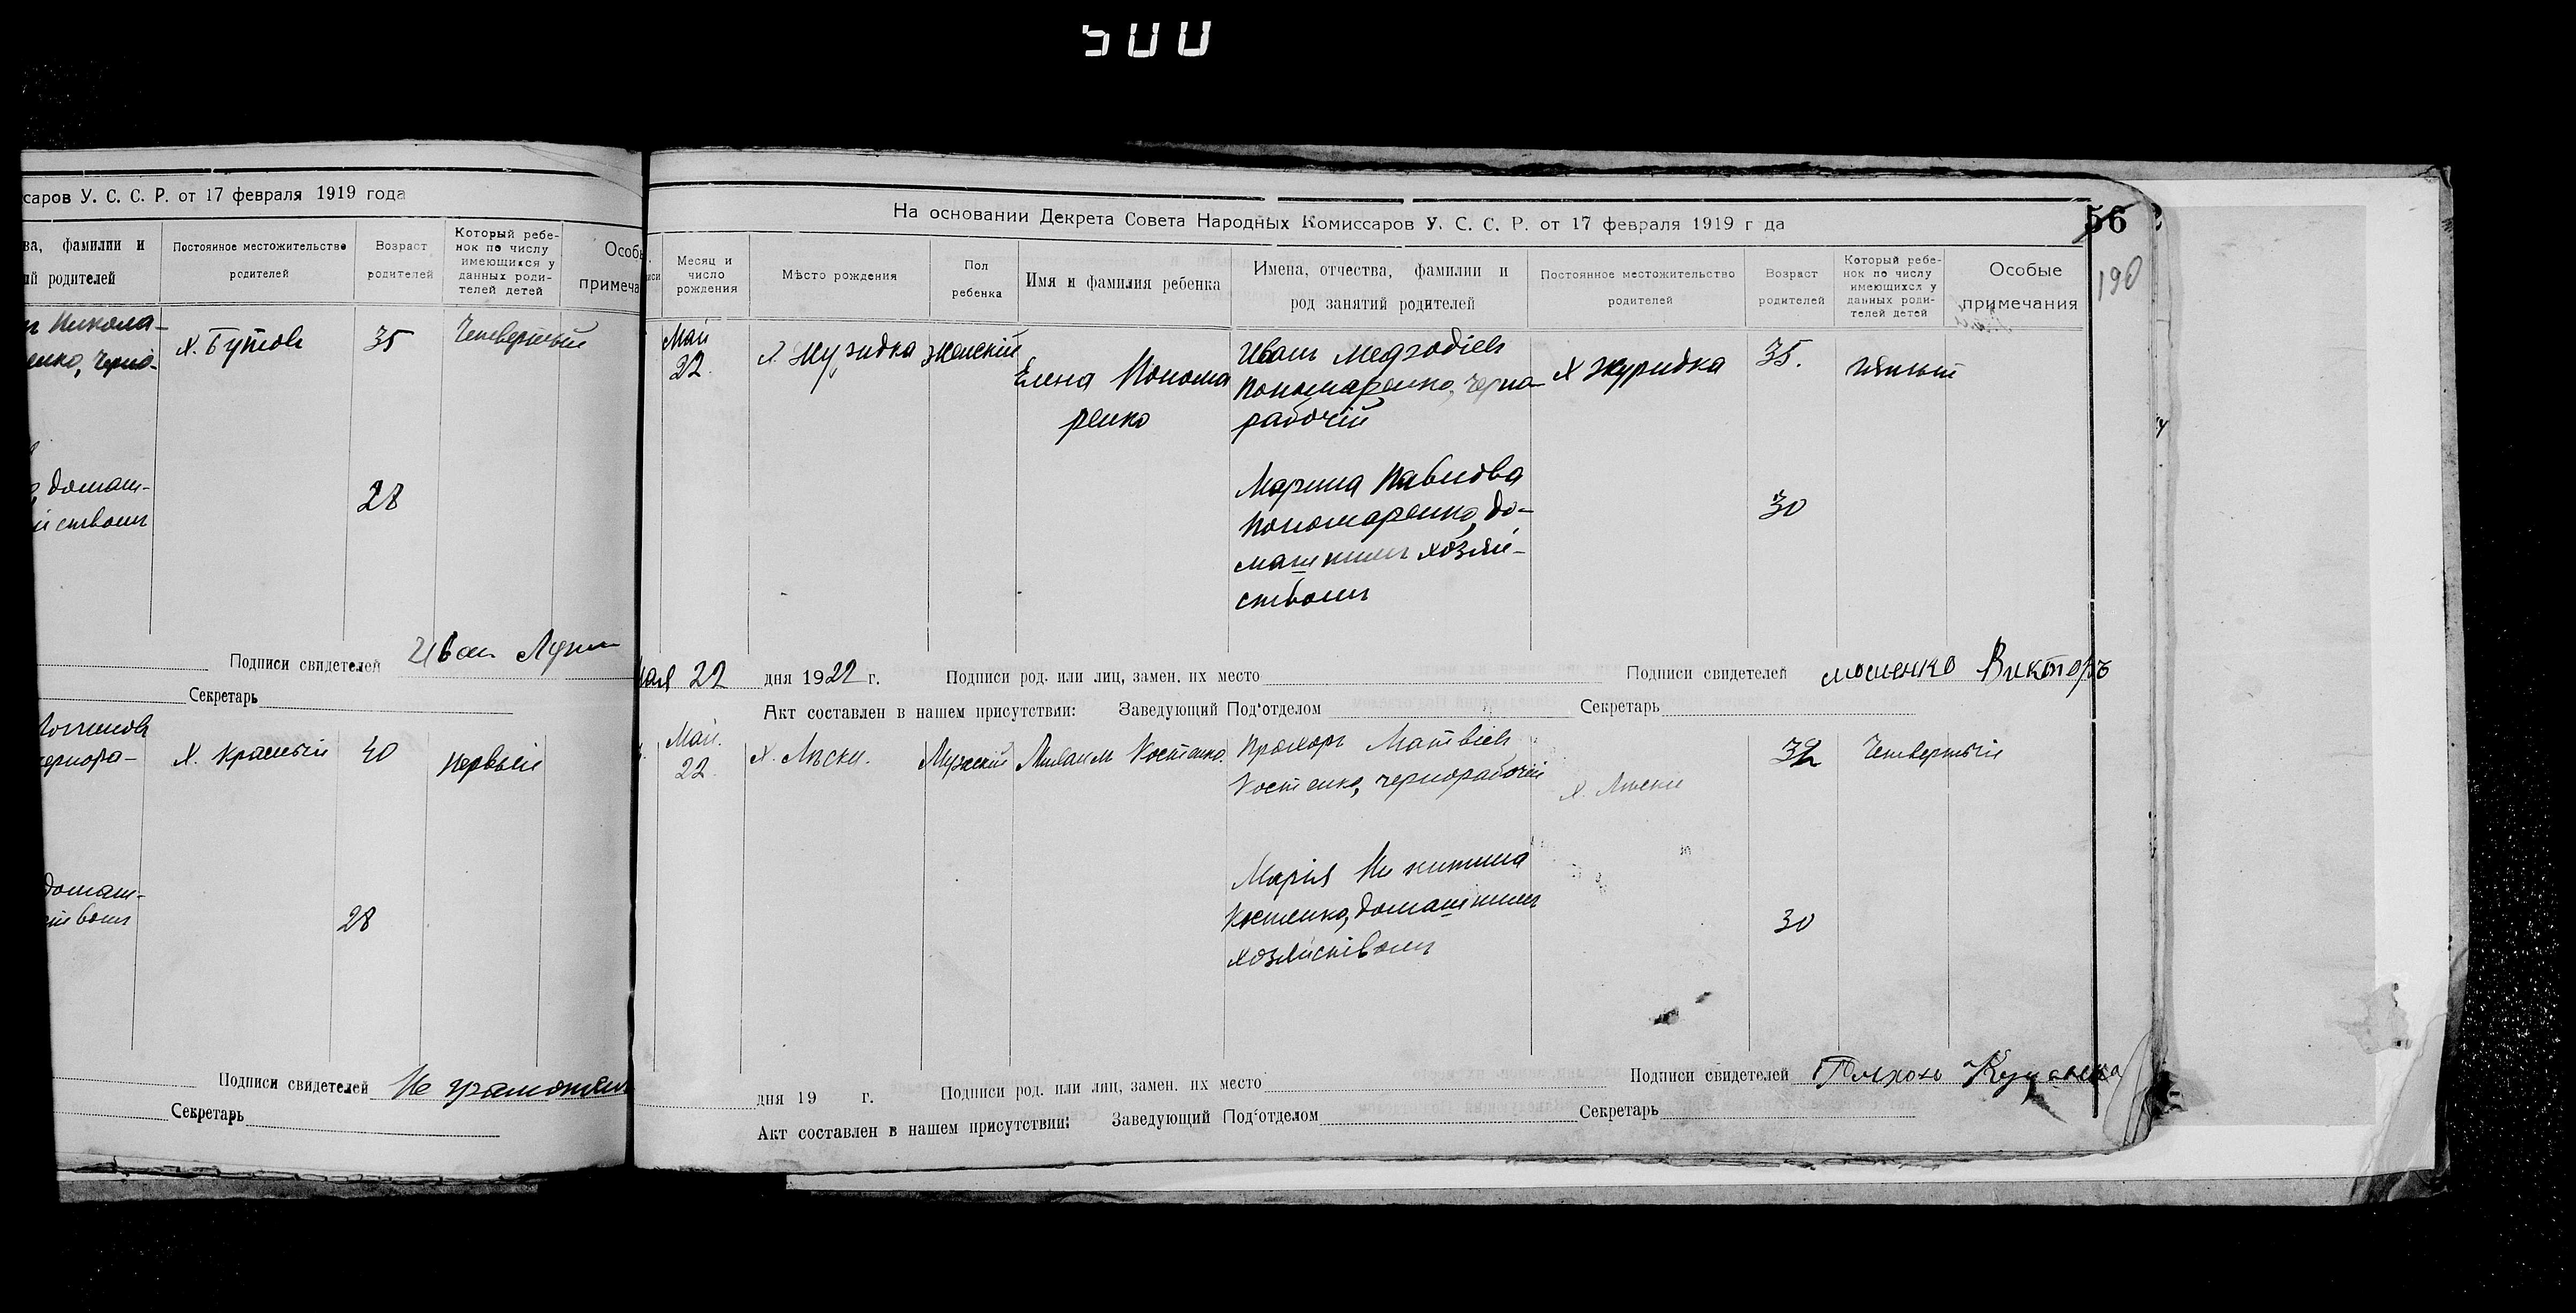 500
саров У. С. С. Р. от 17 февраля 1919 года
ва, фамилии и
ий родителей
Постоянное местожительство
родителей
Возраст
родителей
Который ребе-
нок по числу
имеющихся у
данных роди-
телей детей
Особы
примеча
Никола-
енко, черно-
х. Бутовъ
35
Четвертый
домаш-
йствомъ
28
Подписи свидетелей Иван
Секретарь
чернора-
х. Красный
40
первый
домаш-
ствомъ
28
Подписи свидетелей Не грамотный
Секретарь
На основании Декрета Совета Народных Комиссаров У. С. С. Р. от 17 февраля 1919 г да
56
190
Месяц и
число
рождения
Мѣсто рождения
Пол
ребенка
Имя и фамилия ребенка
Имена, отчества, фамилии и
род занятий родителей
Постоянное местожительство
родителей
Возраст
родителей
Который ребе-
нок по числу
имеющихся у
данных роди-
телей детей
Особые
примечания
Май
22.
х. Журидка
женскій
Елена Понома
ренко
Иван
Пономаренко, черно-
рабочій
Марина Павлова
Пономаренко, до-
машним хозяй-
ствомъ
х Журидка
35.
30
пятый
мая 22 дня 1922 г. Подписи род. или лиц, замен. их место Подписи свидетелей мошенко Викторъ
Акт составлен в нашем присутствии: Заведующий Под‘отделом Секретарь
Май.
22.
х. Лѣски.
Мужскій
Михаилъ Костенко.
Прохоръ Матвіевъ
Костенко, чернорабочій
Марія Никитина
Костенко, домашнимъ
хозяйствомъ
х. Лѣски
32
30
Четвертый
дня 19 г. Подписи род. или лиц, замен. их место Подписи свидетелей
Акт составлен в нашем присутствии: Заведующий Под‘отделом Секретарь